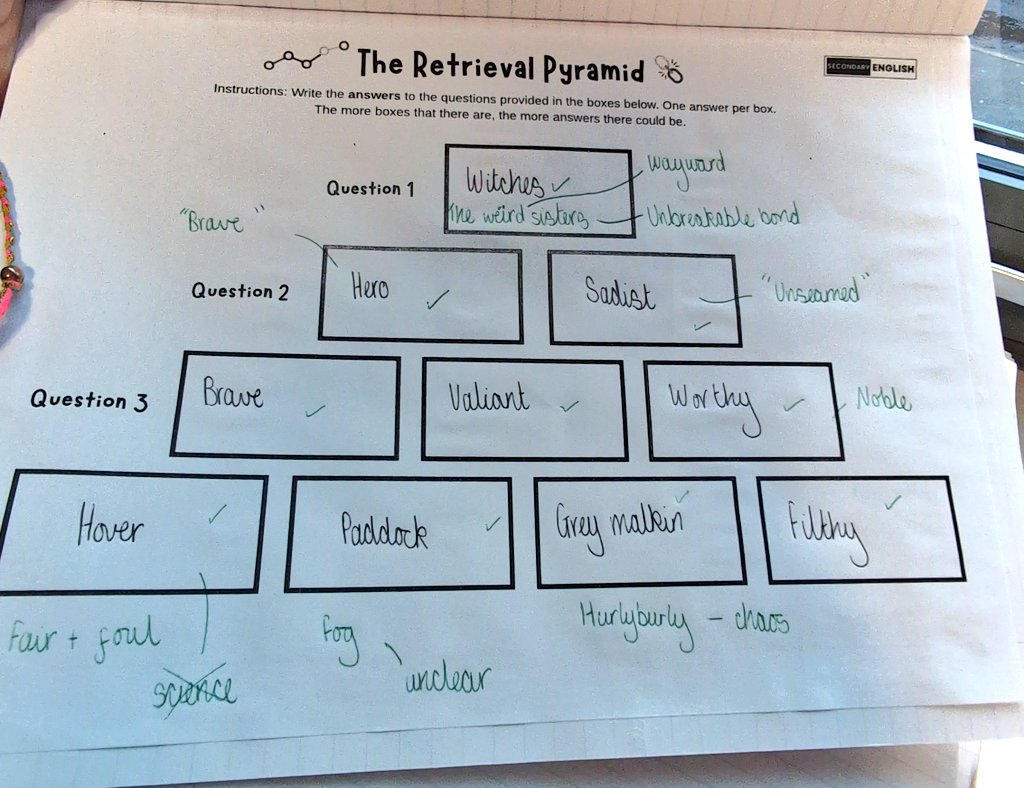 The Retrieval Pyramid
SECONDARY ENGLISH
Instructions: Write the answers to the questions provided in the boxes below. One answer per box.
The more boxes that there are, the more answers there could be.
Question 1
Witches ✓
wayward
The weird sisters
Unbreakable bond
"Brave"
Question 2
Hero ✓
Sadist ✓
"Unseamed"
Question 3
Brave ✓
Valiant ✓
Worthy ✓
Noble
Hover ✓
Paddock ✓
Grey malkin ✓
Filthy ✓
Fair + foul
science
Fog
unclear
Hurlyburly - chaos